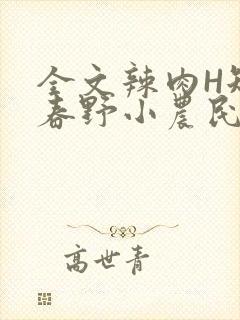 全文辣肉H短
春野小农民
高世青